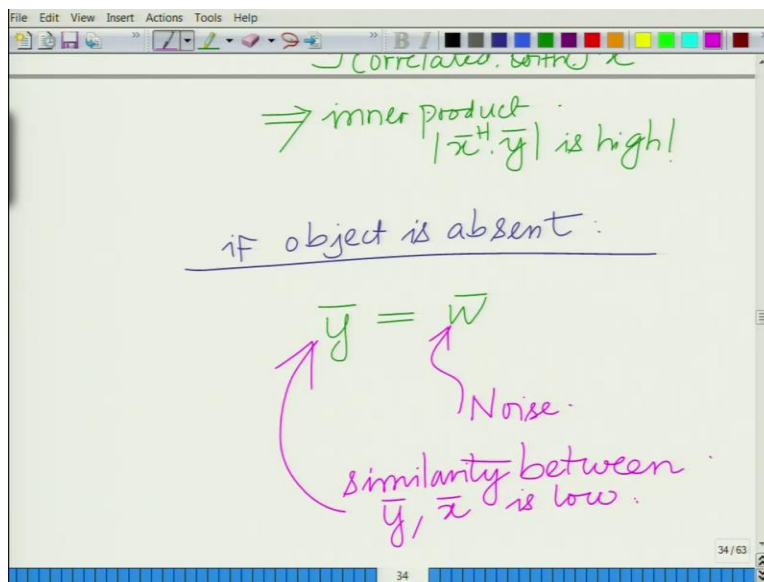 File Edit View Insert Actions Tools Help
B I
correlated with x
⇒ inner product
|x̅ᴴ.y̅| is high!
if object is absent:
y̅ = w̅
Noise.
similarity between
y̅, x̅ is low.
34/63
34